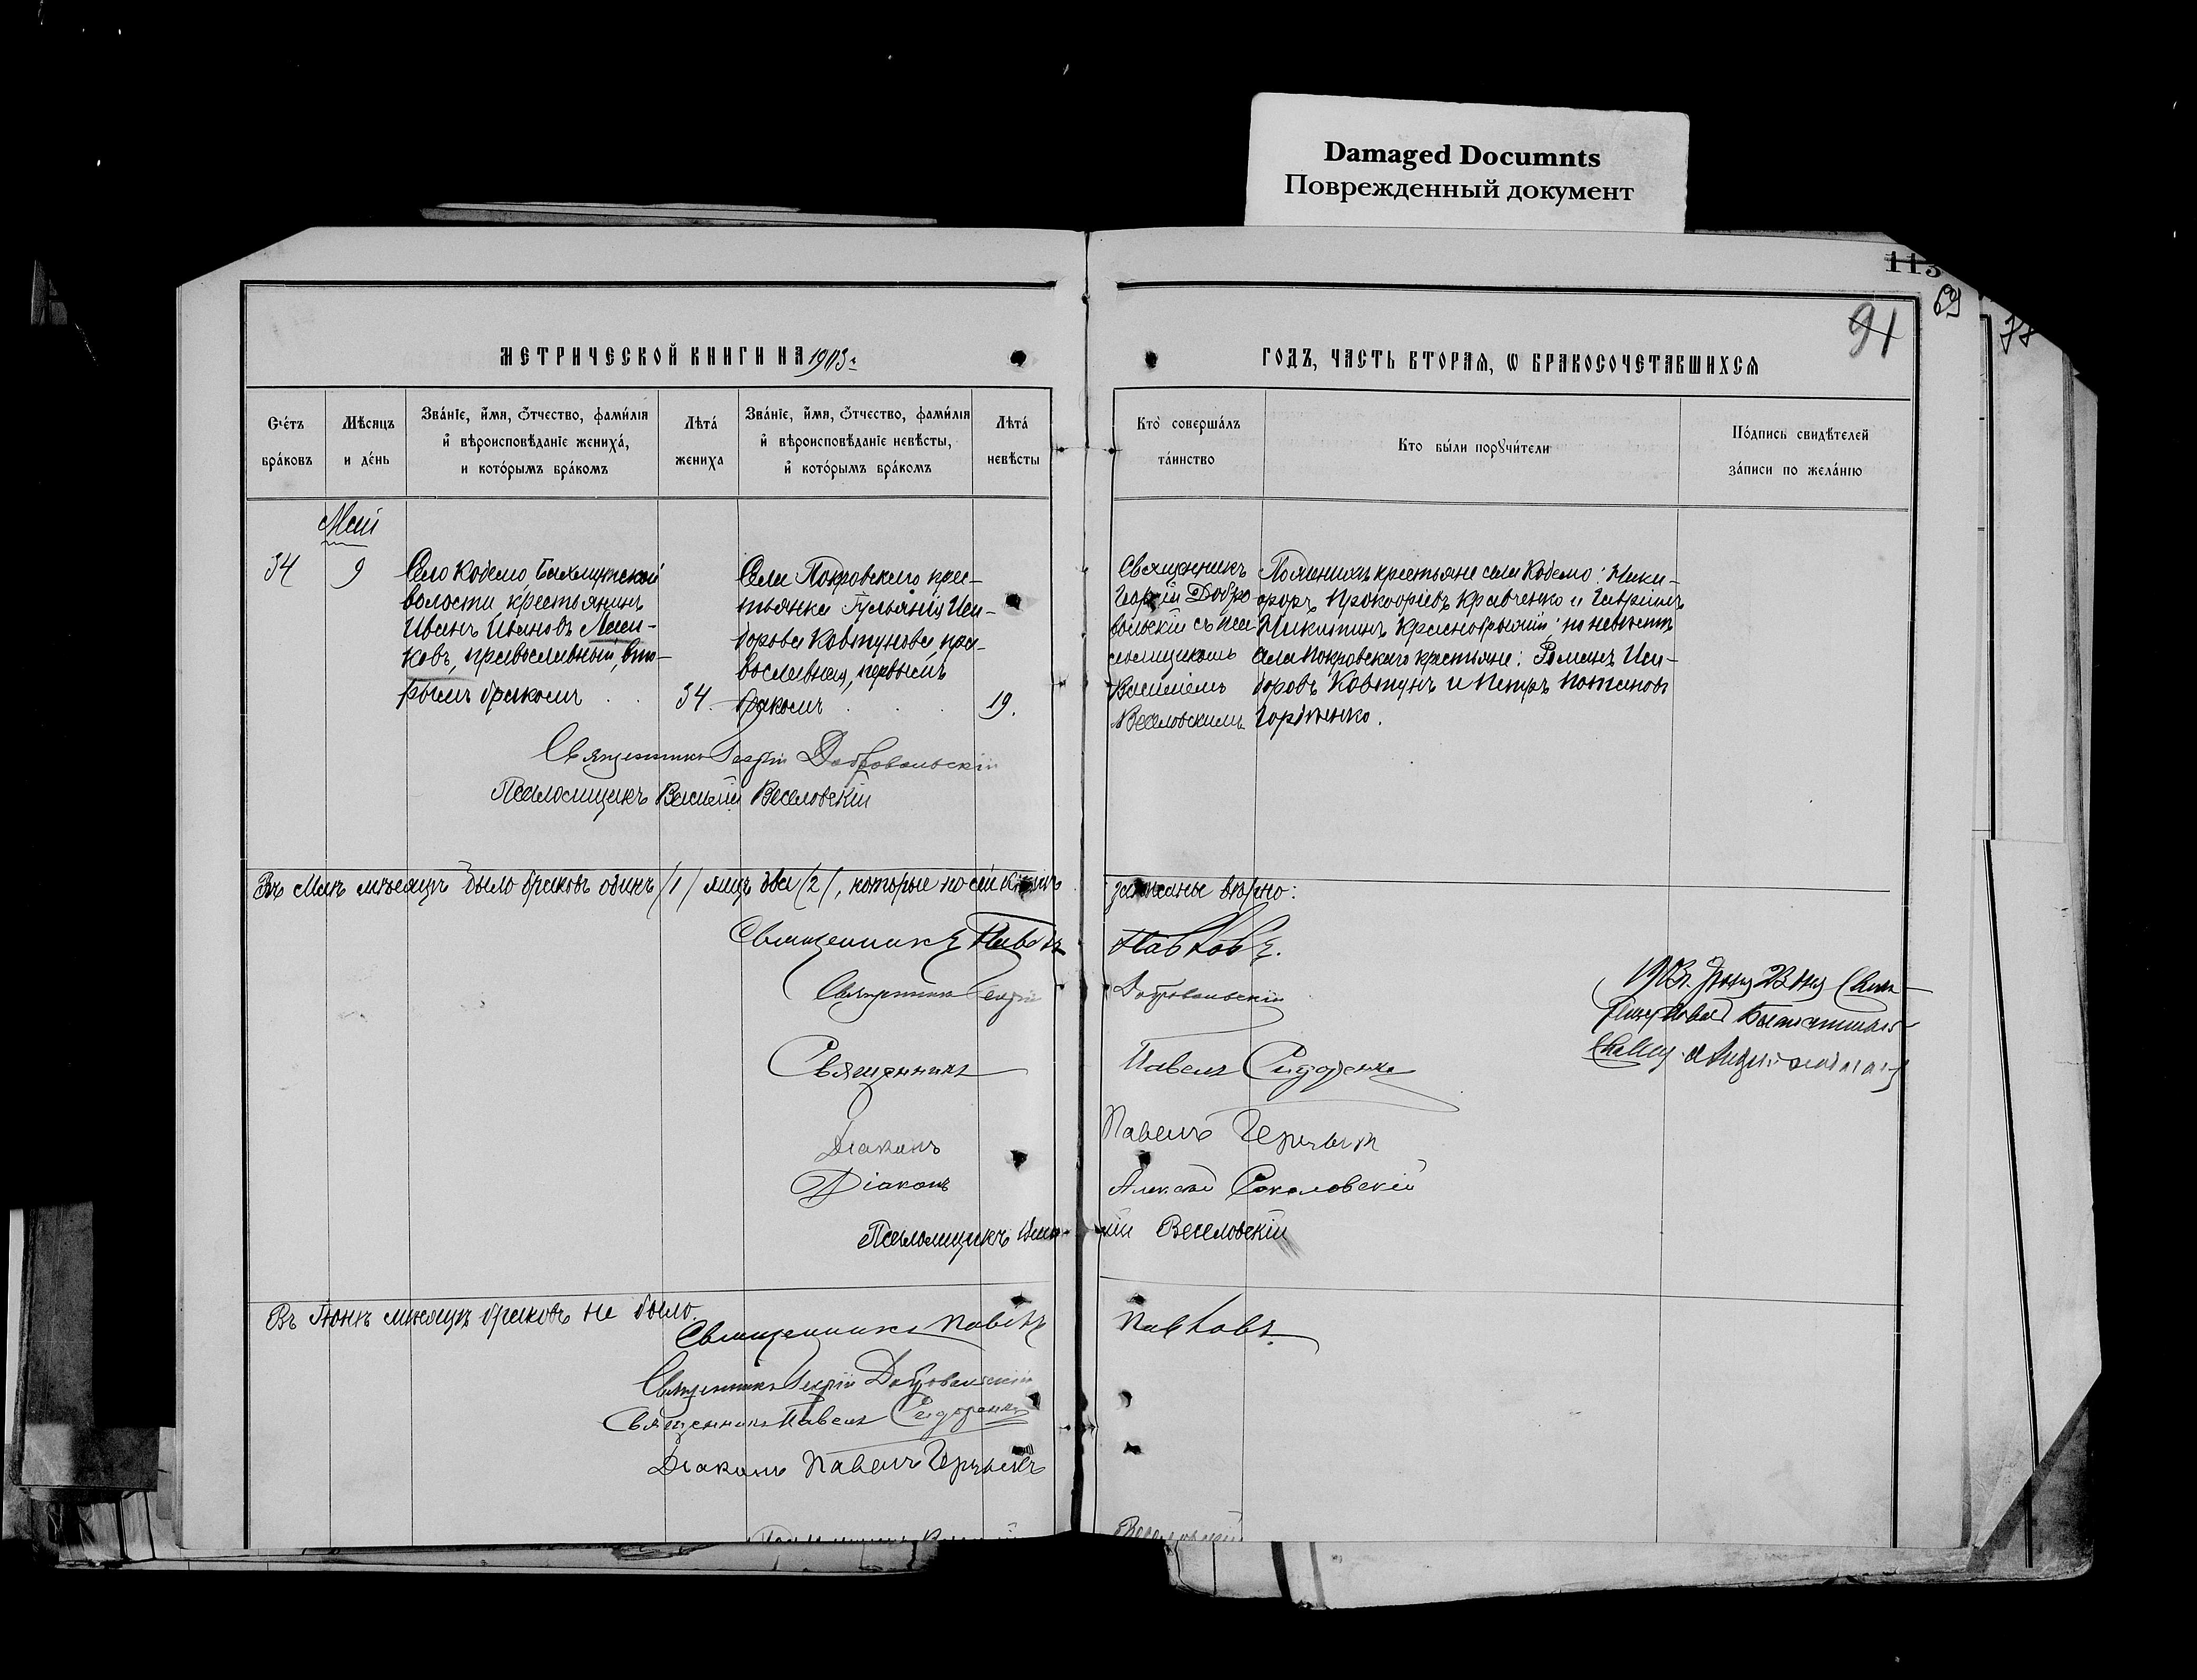 Damaged Documnts
Поврежденный документ
113
69
91
78
МЕТРИЧЕСКОЙ КНИГИ НА 1903 г.
ГОДЪ, ЧАСТЬ ВТОРАЯ, Ѡ БРАКОСОЧЕТАВШИХСЯ
Счетъ браковъ
Мѣсяцъ и день
Званіе, имя, отчество, фамилія
и вѣроисповѣданіе жениха,
и которымъ бракомъ
Лѣта жениха
Званіе, имя, отчество, фамилія
и вѣроисповѣданіе невѣсты,
и которымъ бракомъ
Лѣта невѣсты
Кто совершалъ таинство
Кто были поручители
Подпись свидѣтелей
записи по желанію
Май
34
9
Село Кодемо, Бахмутской
волости крестьянинъ
Иванъ Ивановъ
православный, вто-
рымъ бракомъ
34.
Села Покровскаго крес-
тьянка Гульянія Иси-
дорова Ковтунова, пра-
вославная, первымъ
бракомъ
19.
Священникъ
Георгій Добро
вольскій съ пса
ломщикомъ
Василіемъ
Веселовскимъ
По женихѣ крестьяне села Кодемо: Ники-
форъ Прокофіевъ Кравченко и Гавріилъ
Никитинъ по невѣстѣ
села Покровскаго крестьяне: Романъ Иси-
доровъ Ковтунъ и Петръ Потаповъ
Гордѣенко.
Священникъ Георгій Добровольскій
Псаломщикъ Василій Веселовскій
Въ Маѣ мѣсяцѣ было браковъ одинъ /1/ лицъ два /2/, которые по сей книгѣ
записаны вѣрно:
Священникъ
Павловъ.
Священникъ Георгій
Добровольскій
Священникъ
Павелъ Сидоренко
Діаконъ
Павелъ
Діаконъ
Алексій Соколовскій
Псаломщикъ Васи-
лій Веселовскій
Въ Іюнѣ мѣсяцѣ браковъ не было.
Священникъ
Павловъ.
Священникъ Георгій Добровольскій
Священникъ Павелъ Сидоренко
Діаконъ Павелъ
Псаломщикъ Василій
Веселовскій